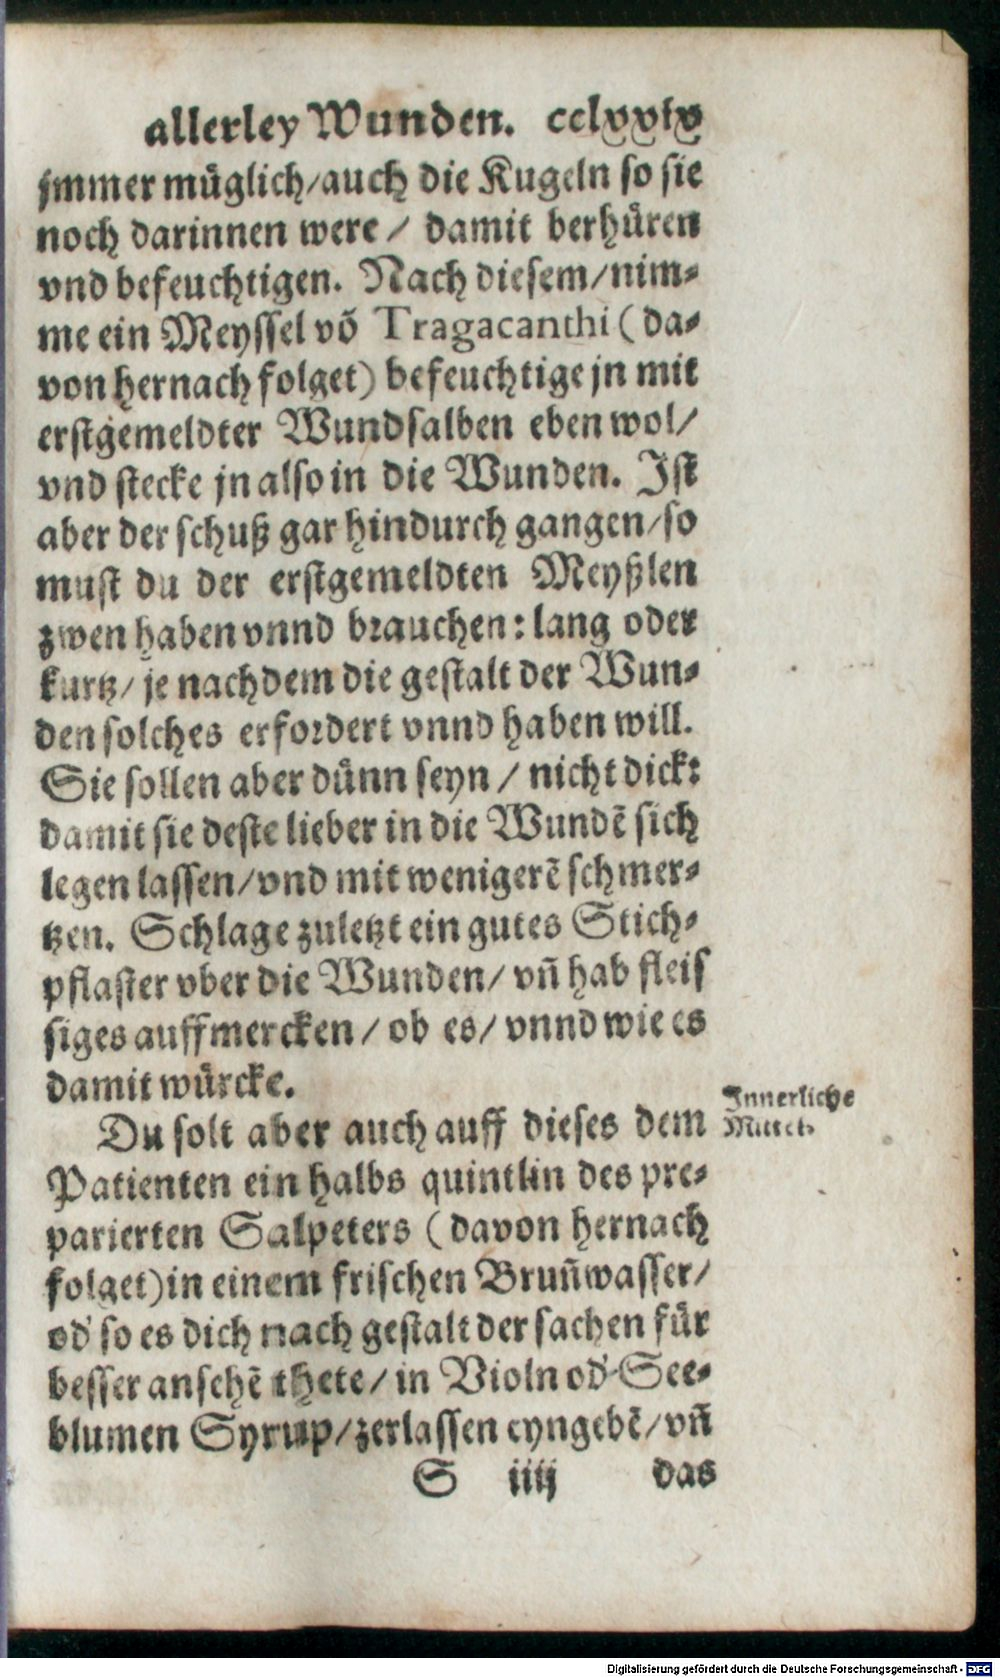 allerley Wunden. cclxxix
jmmer müglich/auch die Kugeln so sie
noch darinnen were / damit berhüren
vnd befeuchtigen. Nach diesem/nim-
me ein Meyssel võ Tragacanthi ( da-
von hernach folget) befeuchtige jn mit
erstgemeldter Wundsalben eben wol/
vnd stecke jn also in die Wunden. Ist
aber der schuß gar hindurch gangen/so
must du der erstgemeldten Meyßlen
zwen haben vnnd brauchen: lang oder
kurtz/ je nachdem die gestalt der Wun-
den solches erfordert vnnd haben will.
Sie sollen aber dünn seyn / nicht dick:
damit sie deste lieber in die Wundẽ sich
legen lassen/vnd mit wenigerẽ schmer-
tzen. Schlage zuletzt ein gutes Stich-
pflaster vber die Wunden/ vñ hab fleis
siges auffmercken / ob es/ vnnd wie es
damit würcke.
Innerliche
Mittel.
Du solt aber auch auff dieses dem
Patienten ein halbs quintlin des pre-
parierten Salpeters ( davon hernach
folget)in einem frischen Bruñwasser/
od' so es dich nach gestalt der sachen für
besser ansehẽ thete/ in Violn od' See-
blumen Syrup/zerlassen eyngebẽ/vñ
S iiij das
Digitalisierung gefördert durch die Deutsche Forschungsgemeinschaft - DFG